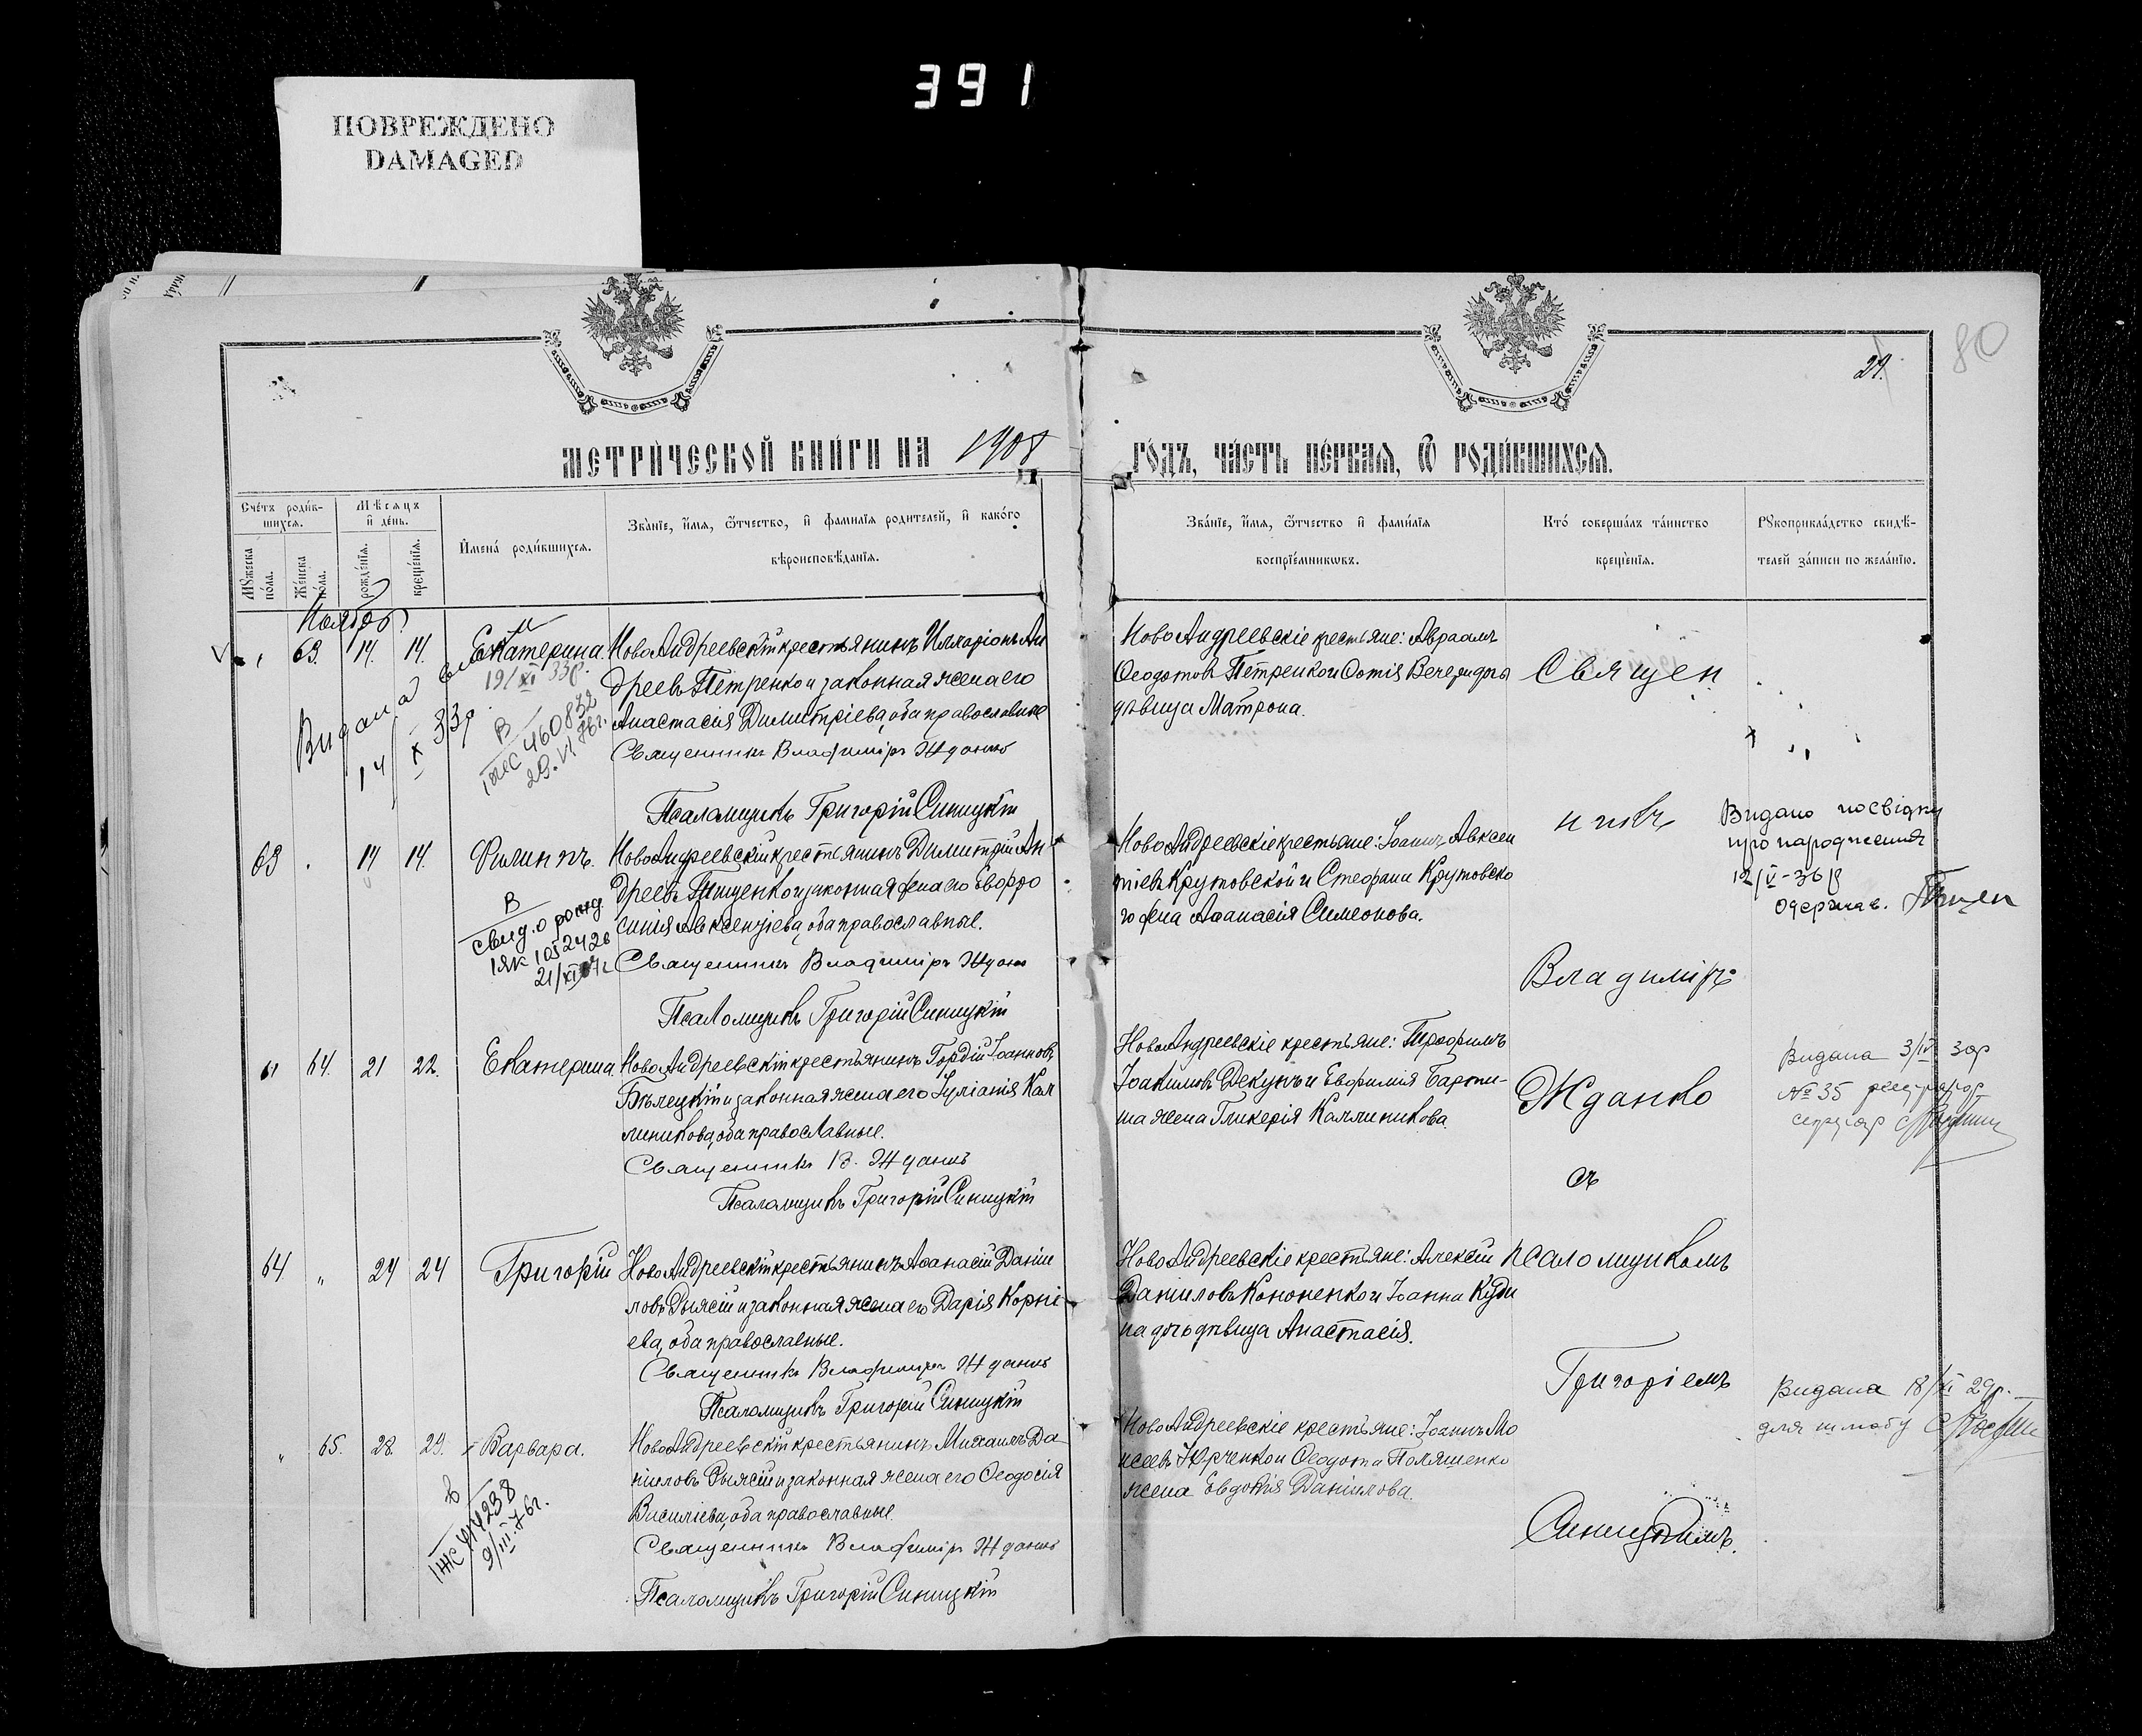 391
ПОВРЕЖДЕНО
DAMAGED
80
29.
МЕТРИ́ЧЕСКОЙ КНИ́ГИ НА 1908 ГО́ДЪ, ЧА́СТЬ ПЕ́РВАЯ, Ѡ РОДИ́ВШИХСЯ.
Сче́тъ роди́вшихся.
Мѣ́сяцъ и де́нь.
Имена́ роди́вшихся.
Зва́нїе, и́мя, ѻ҆́тчество, и҆ фами́лїя родителей, и҆ како́го вѣроисповѣ́данїя.
Зва́нїе, и́мя, ѻ҆́тчество и҆ фами́лїя воспрїе́мниковъ.
Кто́ соверша́лъ та́инство креще́нїя.
Рꙋкоприкла́дство свидѣ́телей за́писи по жела́нїю.
Мꙋ́жеска по́ла.
Же́нска по́ла.
рожде́нїя.
креще́нїя.
Ноябрь
63. 14. 14. Екатерина. НовоАндреевскій крестьянинъ Илларіонъ Ан
дреевъ Петренко и законная жена его
Анастасія Димитріева, оба православные
Священникъ Владиміръ Жданко
Псаломщикъ Григорій Синицкій
НовоАндреевскіе крестьяне: Авраамъ
Ѳеодотовъ Петренко и Ѳотія
дѣвица Матрона.
Священ
никъ
Видана
14/X 33р
19/XI 33р.
В
460832
29.VI 76г.
63 14 14. Филиппъ. НовоАндреевскій крестьянинъ Димитрій Ан
дреевъ Пищенко и законная жена его Евфро
синія Авксентіева, оба православные.
Священникъ Владиміръ Жданко
Псаломщикъ Григорій Синицкій
НовоАндреевскіе крестьяне: Іоаннъ Авксен
тіевъ Крутовской и Стефана Крутовско
го жена Аѳанасія Симеонова.
Владиміръ
В
свид. о рожд.
IЯК 1052426
Видано посвідку
про народження
12/V-36р
Одержав.
64. 21 22. Екатерина. НовоАндреевскій крестьянинъ Гордій Іоанновъ
Бѣлецкій и законная жена его Іуліанія Кал
линикова, оба православные.
Священникъ В. Жданко
Псаломщикъ Григорій Синицкій
НовоАндреевскіе крестьяне: Трофимъ
Іоакимовъ Декунъ и Евфимія
жена Гликерія Каллиникова.
Жданко
съ
Видана 3/IV 30р
№ 35
64 „ 24 24 Григорій НовоАндреевскій крестьянинъ Аѳанасій Даніи
ловъ и законная жена его Дарія Корні
ева, оба православные.
Священникъ Владиміръ Жданко
Псаломщикъ Григорій Синицкій
НовоАндреевскіе крестьяне: Алексій
Даніиловъ Кононенко и Іоанна
дочь дѣвица Анастасія.
псаломщикомъ
Григоріемъ
„ 65. 28. 29. Варвара. НовоАндреевскій крестьянинъ Михаилъ Да
ніиловъ и законная жена его Ѳеодосія
Василіева, оба православные.
Священникъ Владиміръ Жданко
Псаломщикъ Григорій Синицкій
НовоАндреевскіе крестьяне: Іоаннъ Мо
исеевъ Юрченко и Ѳеодота Поляшенко
жена Евдокія Даніилова.
Синицкимъ.
Видана 18/XI 29р.
для шлюбу
9/III.76г.